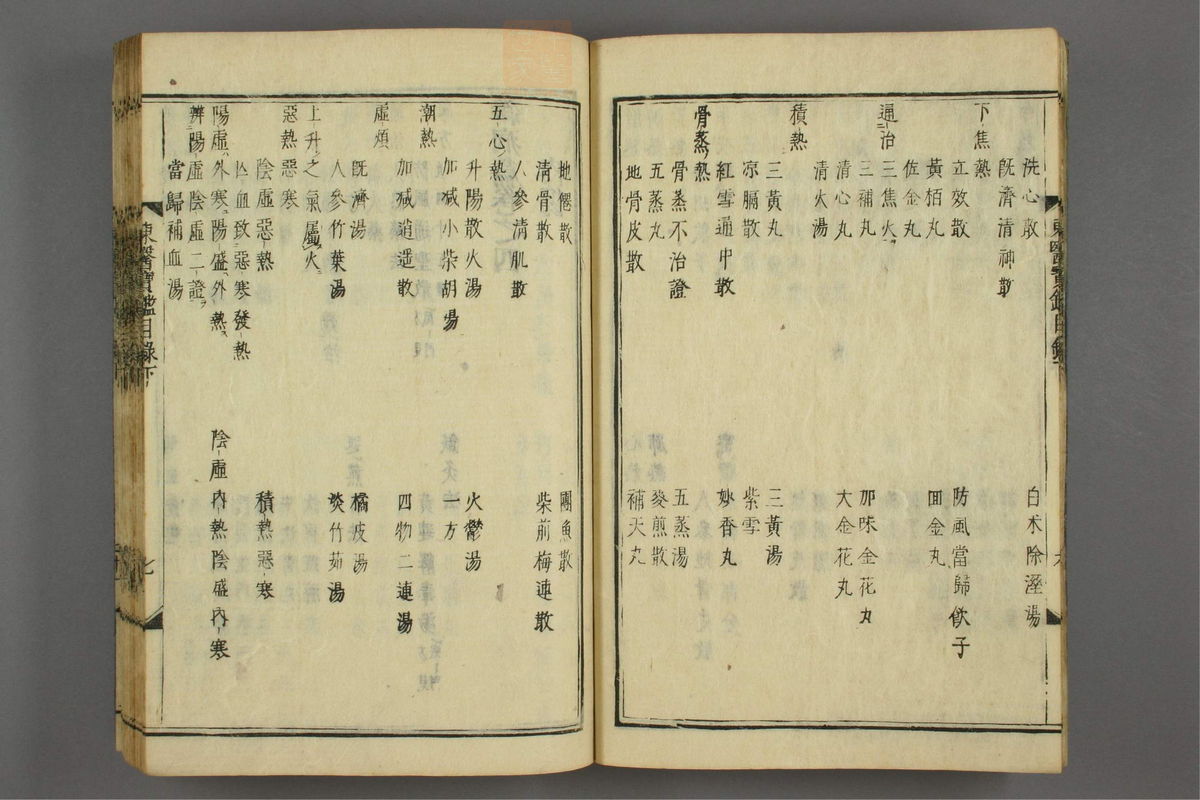 洗心散 白朮除溼湯
既濟清神散
下焦熱
立效散 防風當歸飲子
黃栢丸 回金丸
佐金丸
通治三焦火
三補丸 加味金花丸
清心丸 大金花丸
清火湯
積熱
三黃丸 三黃湯
凉膈散 紫雪
紅雪通中散 妙香丸
骨蒸熱
骨蒸不治證 五蒸湯
五蒸丸 麥煎散
地骨皮散 補天丸
地僊散 團魚散
清骨散 柴前梅連散
人參清肌散
五心熱
升陽散火湯 火鬱湯
潮熱
加减小柴胡湯 一方
加减逍遥散 四物二連湯
虛煩
既濟湯 橘皮湯
人參竹葉湯 淡竹茹湯
上升之氣屬火
惡熱惡寒
陰虛惡熱 積熱惡寒
亡血致惡寒發熱
陽虛外寒陽盛外熱 陰虛內熱陰盛內寒
辨陽虛陰虛二證
當歸補血湯
東醫寶鑑目錄下 七